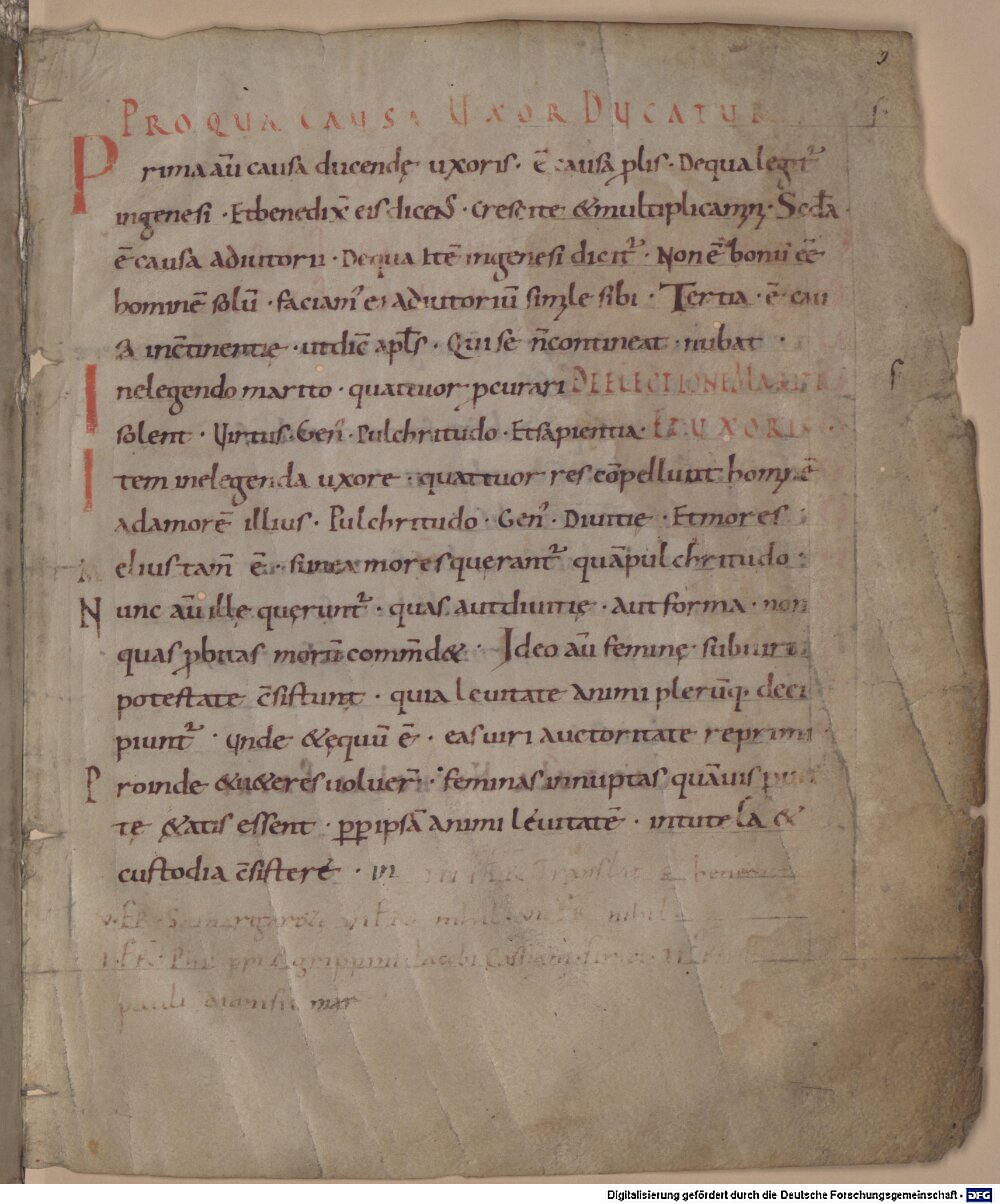 9
PRO QUA CAUSA UXOR DUCATUR
Prima aū causa ducendę uxoris · ē causa ꝓlis · De qua legit᷑
ingenesi · Et benedix̄ eis dicens̄ · Crescite & multiplicamini · Scd̄a
ē causa adiutorii · De qua Itē ingenesi dicit᷑ · Non ē bonū eē
hominē solū · faciam᾽ ei adiutoriū simile sibi · Tertia · ē cau
sa inc̄tinentię · ut dic̄ apl̄s · Qui se n̄ contineat · nubat ·
In elegendo marito · quattuor ꝑcurari DE ELECTIONE MARITI
solent · Uirtus · Gen᾽ · Pulchritudo · Et sapientia · ET UXORIS
Item in elegenda uxore · quattuor res cōpellunt hominē
ad amorē illius · Pulchritudo · Gen᾽ · Diuitię · Et mores
elius tam̄ ē · si in ea mores querant᷑ quā pulchritudo :
Nunc aū illę quęrunt᷑ · quas aut diuitię · aut forma · non
quas ꝓbitas morū comm̄d& · Ideo aū feminę sub uiri
potestate c̄sistunt · quia leuitate animi plerūq· deci
piunt᷑ · Unde & ęquū ē · eas uiri auctoritate reprimi ·
Proinde & u&eres uoluer̄ · feminas innuptas quāuis
tę &atis essent · ꝓpꝑ ipsā animi leuitatē · in tutela &
custodia c̄sistere · in
Translat benedict
nihil nihil
pauli dionisii mar
Digitalisierung gefördert durch die Deutsche Forschungsgemeinschaft - DFG